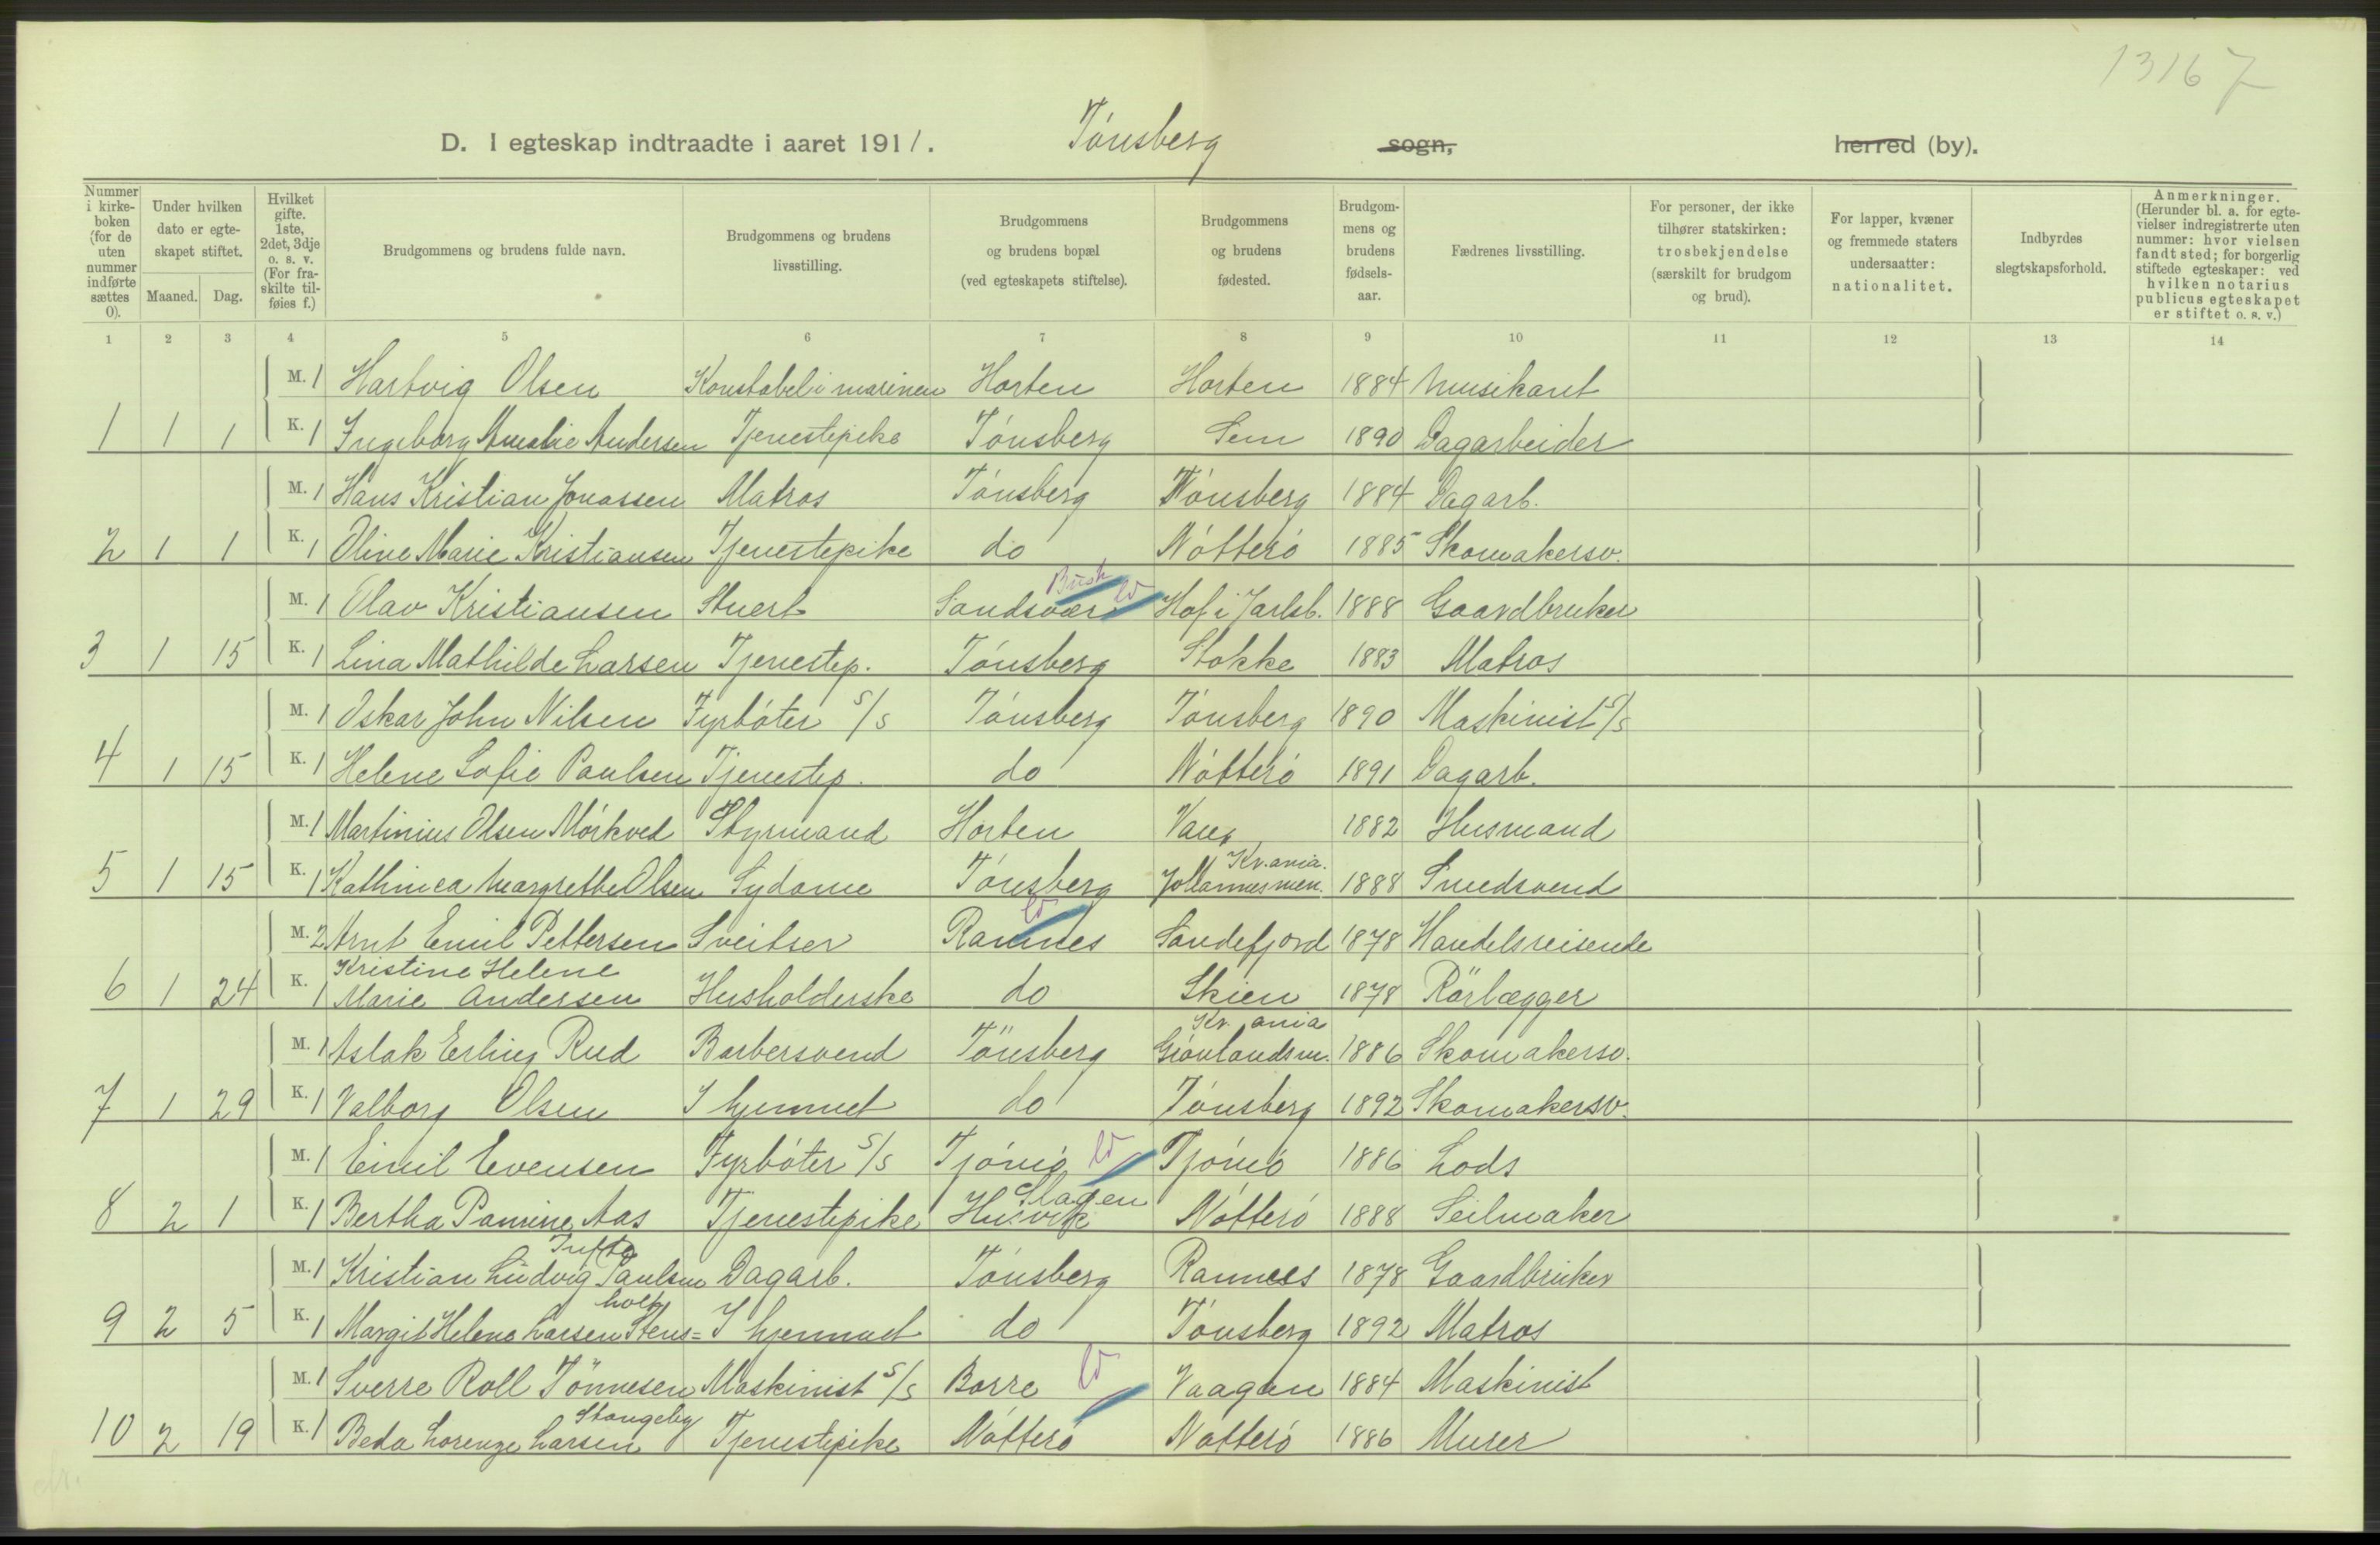 13167
D. I egteskap indtraadte i aaret 1911. Tønsberg sogn, herred (by).
Nummer i kirkeboken (for de uten nummer indførte sættes 0).
Under hvilken dato er egteskapet stiftet.
Maaned. Dag.
Hvilket gifte. 1ste, 2det, 3dje o. s. v. (For fraskilte tilføies f.)
Brudgommens og brudens fulde navn.
Brudgommens og brudens livsstilling.
Brudgommens og brudens bopæl (ved egteskapets stiftelse).
Brudgommens og brudens fødested.
Brudgommens og brudens fødselsaar.
Fædrenes livsstilling.
For personer, der ikke tilhører statskirken: trosbekjendelse (særskilt for brudgom og brud).
For lapper, kvæner og fremmede staters undersaatter: nationalitet.
Indbyrdes slegtskapsforhold.
Anmerkninger. (Herunder bl. a. for egtevielser indregistrerte uten nummer: hvor vielsen fandt sted; for borgerlig stiftede egteskaper: ved hvilken notarius publicus egteskapet er stiftet o. s. v.)
1 2 3 4 5 6 7 8 9 10 11 12 13 14
M. 1 Hartvig Olsen Konstabel i marinen Horten Horten 1884 Musikant
1 1 1 K. 1 Ingeborg Amalie Andersen Tjenestepike Tønsberg Sem 1890 Dagarbeider
M. 1 Hans Kristian Jonassen Matros Tønsberg Tønsberg 1884 Dagarb.
2 1 1 K. 1 Oline Marie Kristiansen Tjenestepike do Nøtterø 1885 Skomakersv.
Busk
M. 1 Olav Kristiansen Stuert Sandsvær Hof i Jarlsb. 1888 Gaardbruker
3 1 15 K. 1 Lina Mathilde Larsen Tjenestep. Tønsberg Stokke 1883 Matros
M. 1 Oskar John Nilsen Fyrbøter S/S Tønsberg Tønsberg 1890 Maskinist S/S
4 1 15 K. 1 Helene Sofie Paulsen Tjenestep. do Nøtterø 1891 Dagarb.
M. 1 Martinius Olsen Mørkved Styrmand Horten 1882 Husmand
Kr.ania.
5 1 15 K. 1 Kathinca Margrethe Olsen Sydame Tønsberg Johannesmen. 1888 Smedsvend
M. 2 Arnt Emil Pettersen Sveitser Ramnes Sandefjord 1878 Handelsreisende
Kristine Helene
6 1 24 K. 1 Marie Andersen Husholderske do Skien 1878 Rörlægger
Kr. ania
M. 1 Aslak Erling Rud Barbersvend Tönsberg Grønlandsm. 1886 Skomakersv.
7 1 29 K. 1 Valborg Olsen I hjemmet do Tønsberg 1892 Skomakersv.
M. 1 Emil Evensen Fyrbøter S/S Tjømø Tjømø 1886 Lods
Slagen
8 2 1 K. 1 Bertha Pamine Aas Tjenestepike Husvik Nøtterø 1888 Seilmaker
Tufte
M. 1 Kristian Ludvig Paulsen Dagarb. Tønsberg Ramnes 1878 Gaardbruker
holt
9 2 5 K. 1 Margit Helene Larsen Stens= I hjemmet do Tønsberg 1892 Matros
M. 1 Sverre Roll Tönnesen Maskinist S/S Borre Vaagen 1884 Maskinist
Stangeby
10 2 19 K. 1 Beda Lorenze Larsen Tjenestepike Nøtterø Nøtterø 1886 Murer